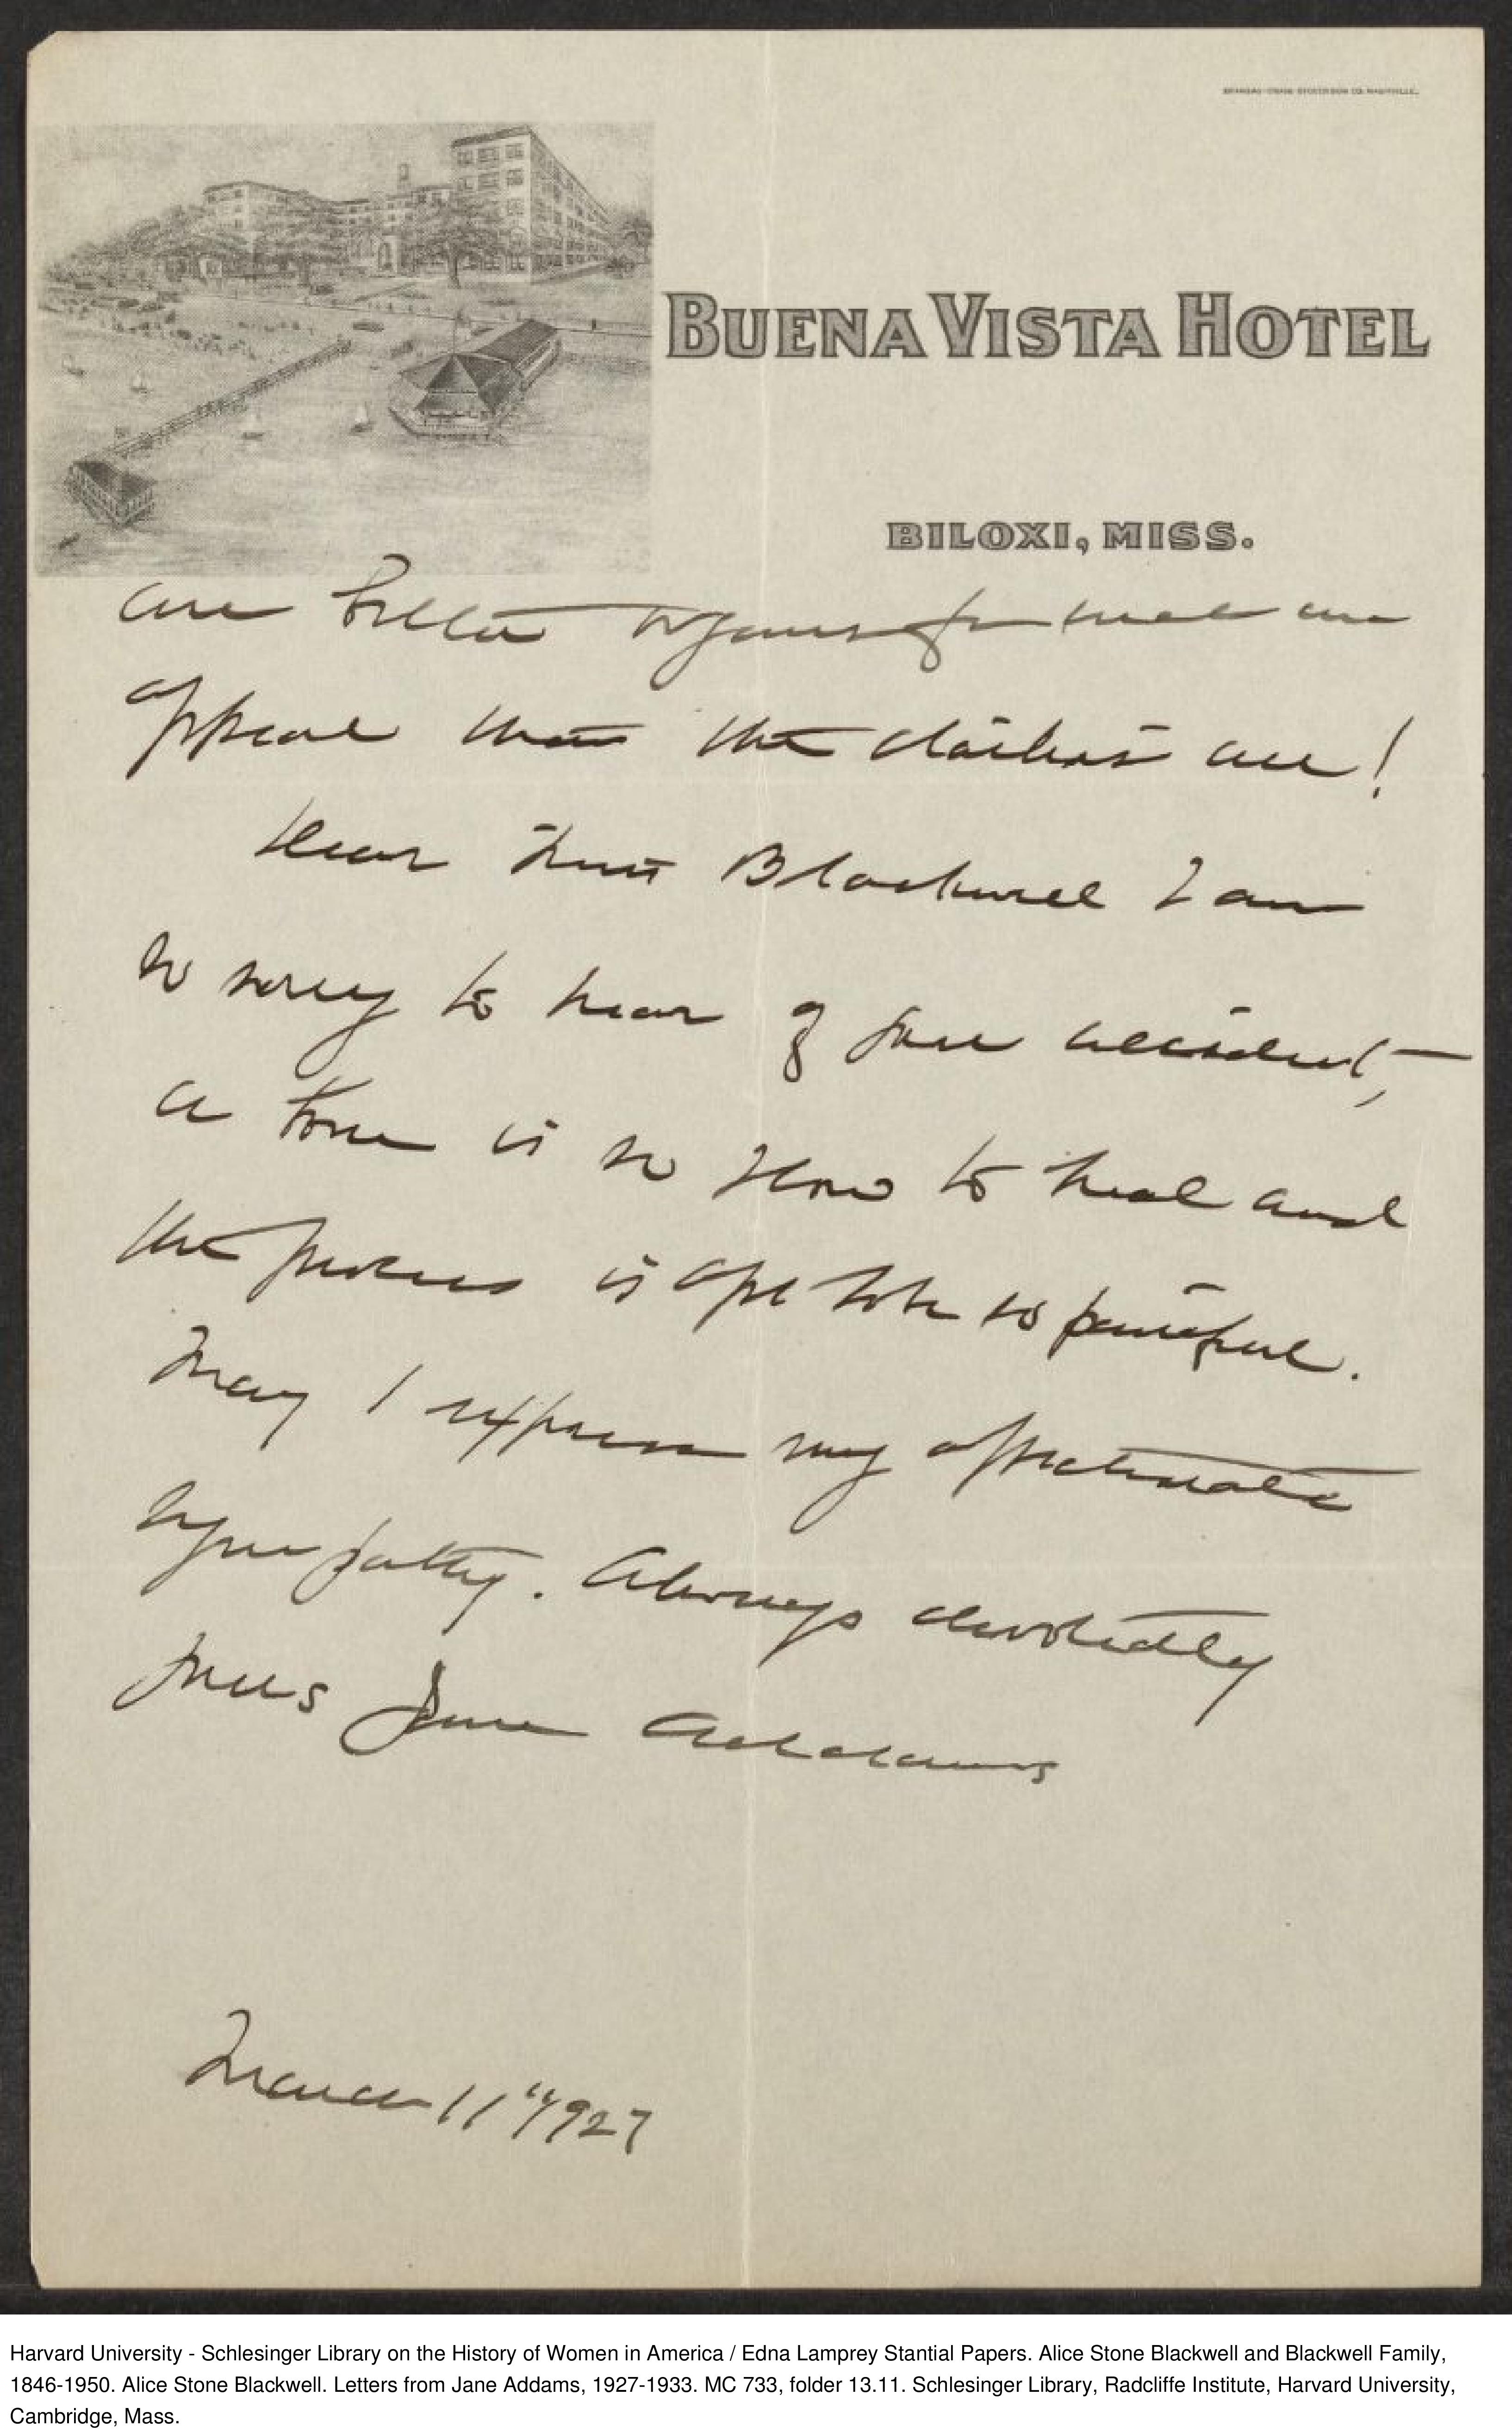 BUENA VISTA HOTEL
BILOXI, MISS.
are better
appeal than the dailies are!
Dear Miss Blackwell I am
so sorry to hear of your accident,—
a bone is so slow to heal and
the process is apt to be so painful.
May I express my affectionate
sympathy. Always devotedly
yours Jane Addams
March 11" 1927
Harvard University - Schlesinger Library on the History of Women in America / Edna Lamprey Stantial Papers. Alice Stone Blackwell and Blackwell Family,
1846-1950. Alice Stone Blackwell. Letters from Jane Addams, 1927-1933. MC 733, folder 13.11. Schlesinger Library, Radcliffe Institute, Harvard University,
Cambridge, Mass.